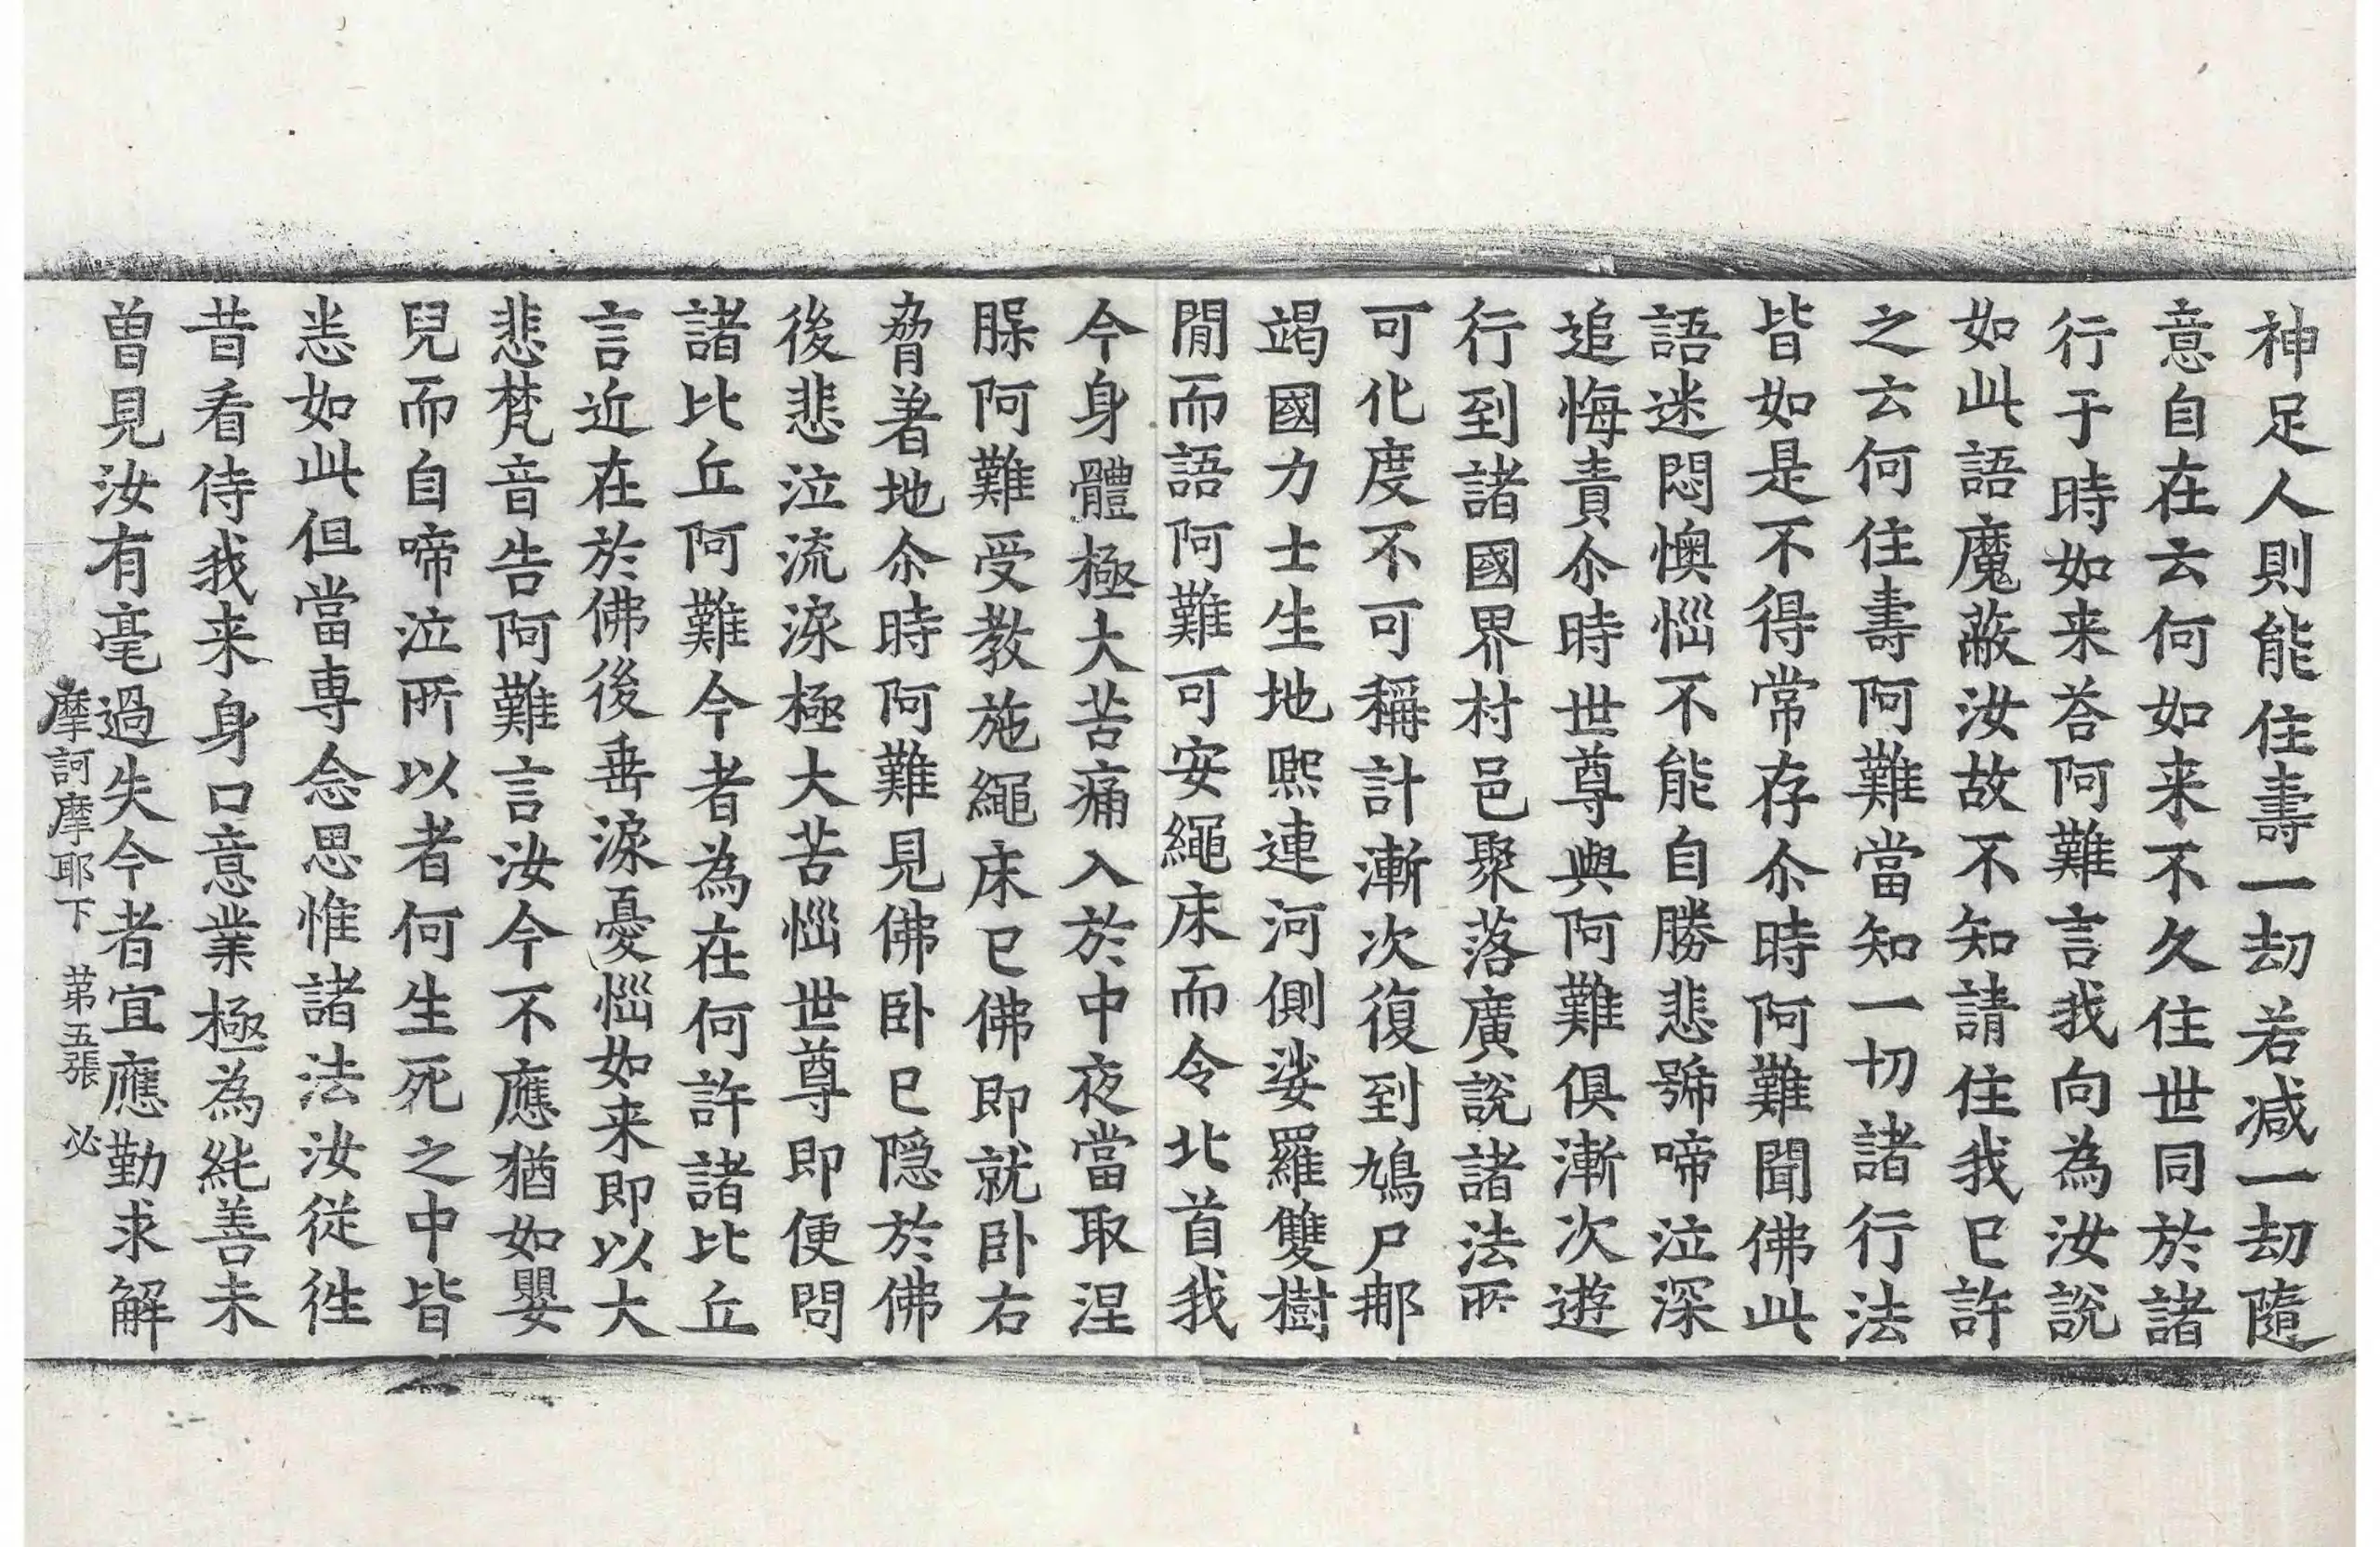 神足人則能住壽一劫若减一劫隨
意自在云何如来不久住世同於諸
行于時如来荅阿難言我向為汝說
如此語魔蔽汝故不知請住我已許
之云何住壽阿難當知一切諸行法
皆如是不得常存尒時阿難聞佛此
語迷悶懊惱不能自勝悲號啼泣深
追悔責尒時世尊與阿難俱漸次遊
行到諸國界村邑聚落廣說諸法所
可化度不可稱計漸次復到鳩尸那
竭國力士生地熈連河側娑羅雙樹
閒而語阿難可安繩床而令北首我
今身體極大苦痛入於中夜當取涅
槃阿難受教施繩床已佛即就卧右
脅著地尒時阿難見佛卧已隱於佛
後悲泣流淚極大苦惱世尊即便問
諸比丘阿難今者為在何許諸比丘
言近在於佛後垂淚憂惱如来即以大
悲梵音告阿難言汝今不應猶如嬰
兒而自啼泣所以者何生死之中皆
悉如此但當専念思惟諸法汝從徃
昔看侍我来身口意業極為純善未
曽見汝有毫過失今者宜應勤求解
摩訶摩耶下 第五張 必